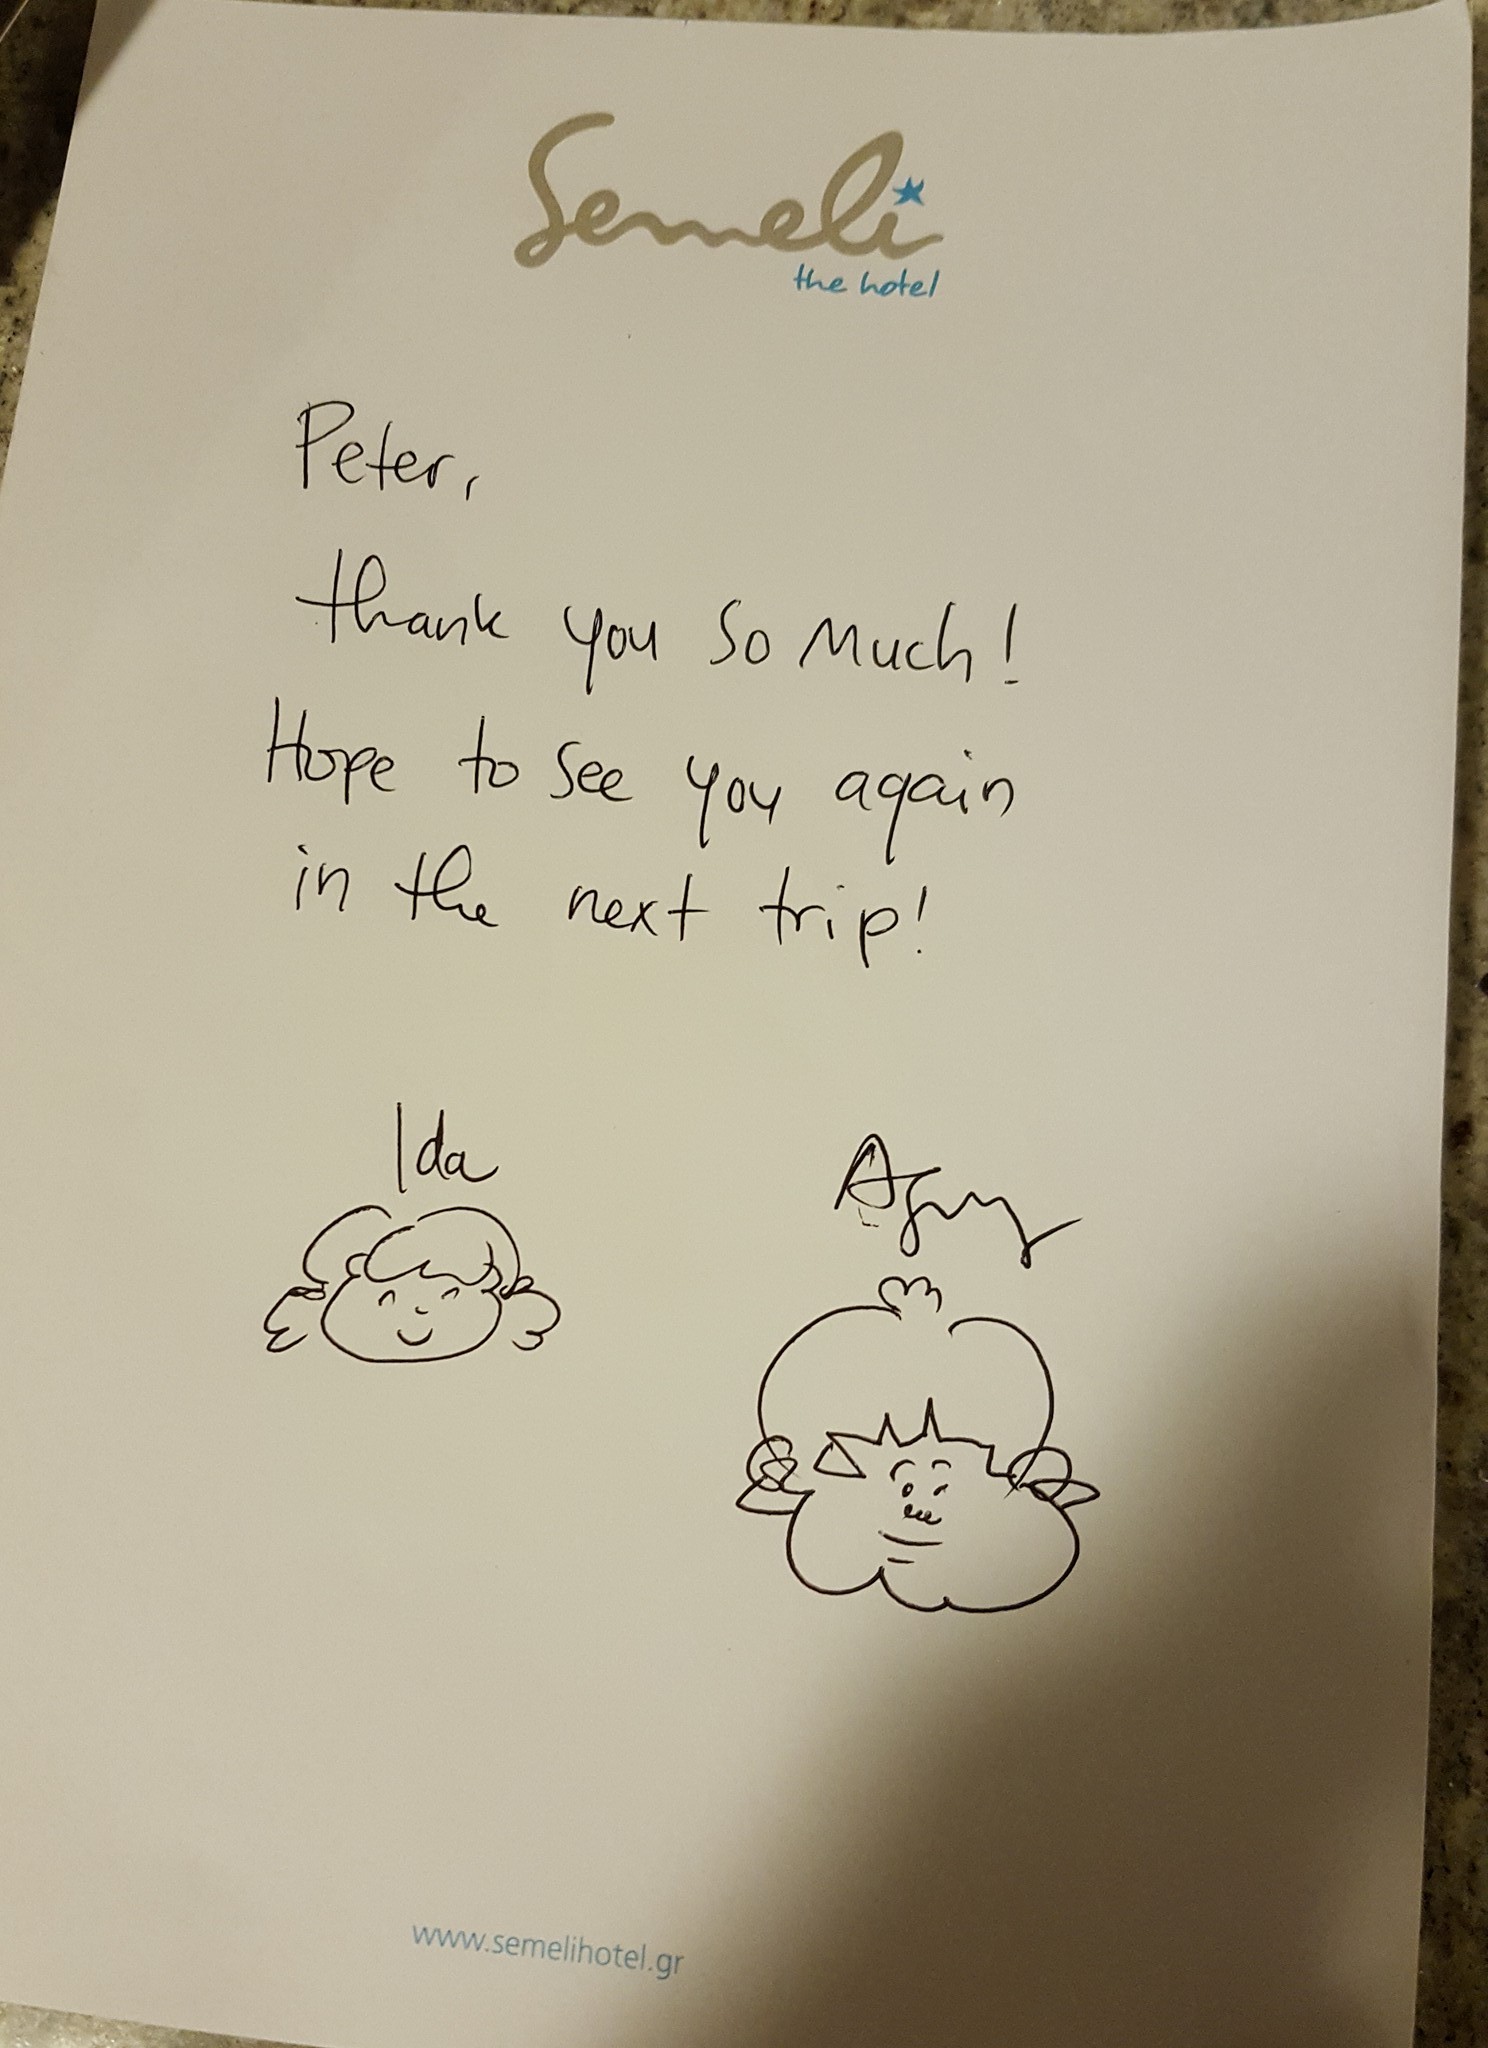 Semeli
the hotel
Peter,
thank you so much!
Hope to see you again
in the next trip!
Ida
www.semelihotel.gr